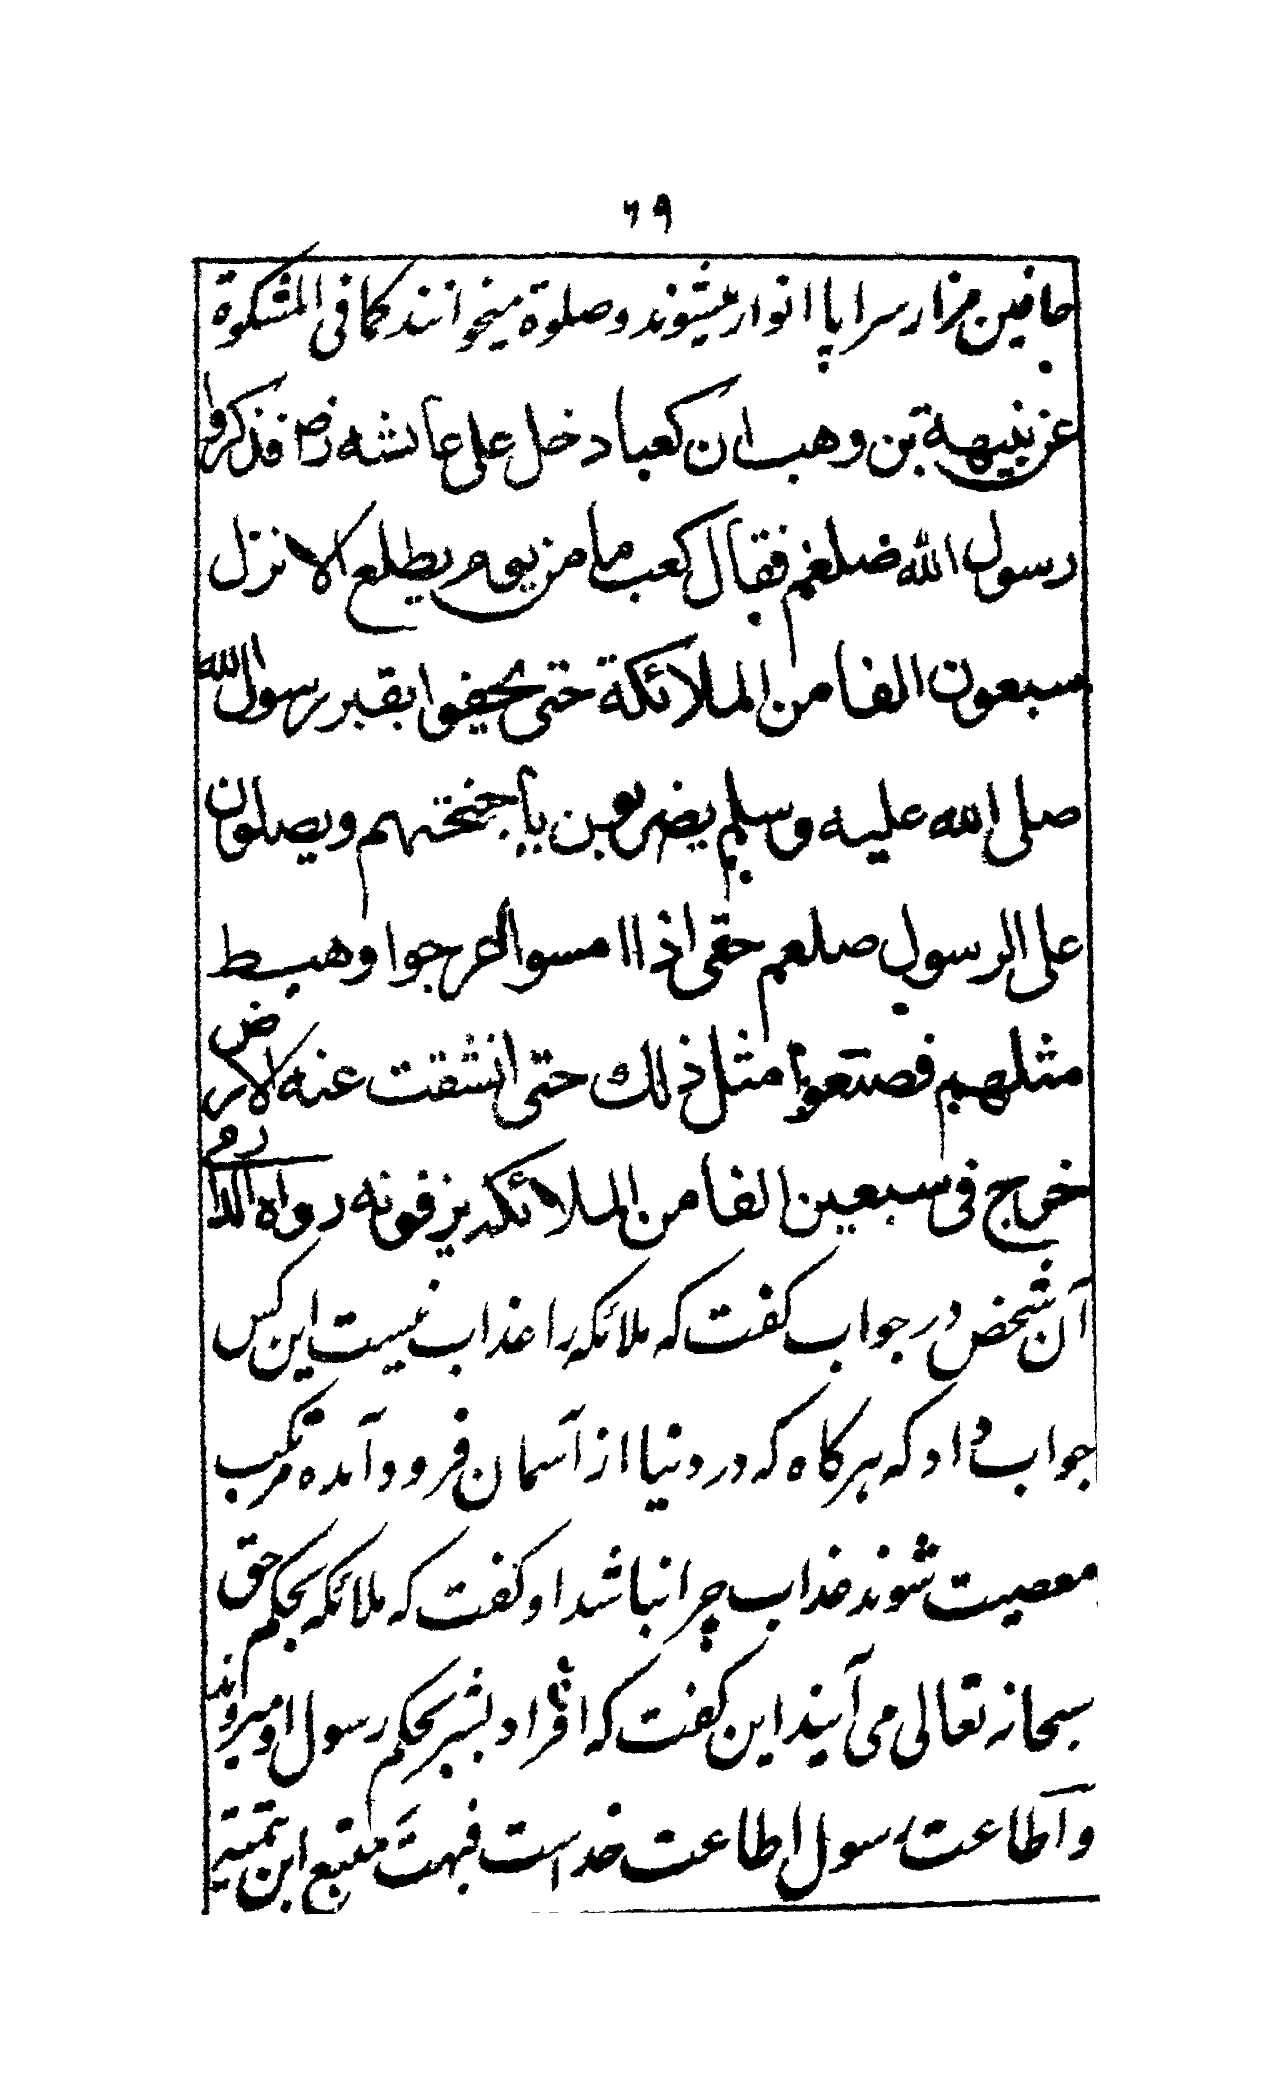 ۶۹
حافین مزار سراپا انوار میشوند و صلوة میخوانند کما فی المشکوة
عن نبیهة بن وهب ان کعبا دخل علی عائشه رض فذکروا
رسول الله صلعم فقال کعب ما من یوم یطلع الا نزل
سبعون الفا من الملائکة حتی یحفوا بقبر رسول الله
صلی الله علیه وسلم یضربون باجنحتهم ویصلون
علی الرسول صلعم حتی اذا امسوا عرجوا وهبط
مثلهم فصنعوا مثل ذلك حتی انشقت عنه الارض
خرج فی سبعین الفا من الملائکه یزفونه رواه الدارمی
آن شخص در جواب گفت که ملائکه را عذاب نیست این کس
جواب داد که هرکاه که در دنیا از آسمان فرود آمده مرتکب
معصیت شوند عذاب چرا نباشد او گفت که ملائکه بحکم حق
سبحانه تعالی می آیند این گفت که افراد بشر بحکم رسول او میروند
و اطاعت رسول اطاعت خداست فبهت متبع ابن تیمیه